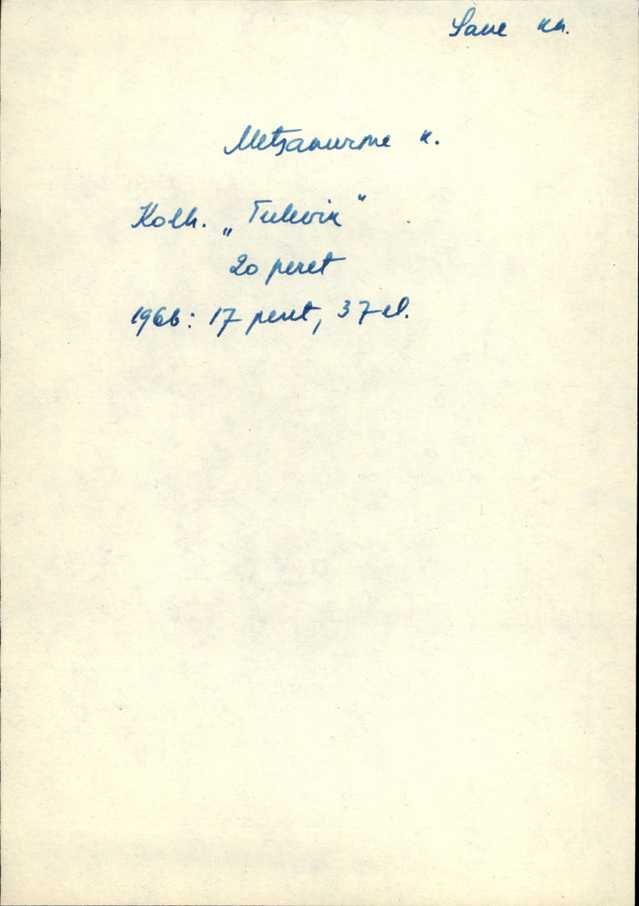 Saue kn.
Metsanurme k.
Kolh. „Tulevik"
20 peret
1966: 17 peret, 37 el.